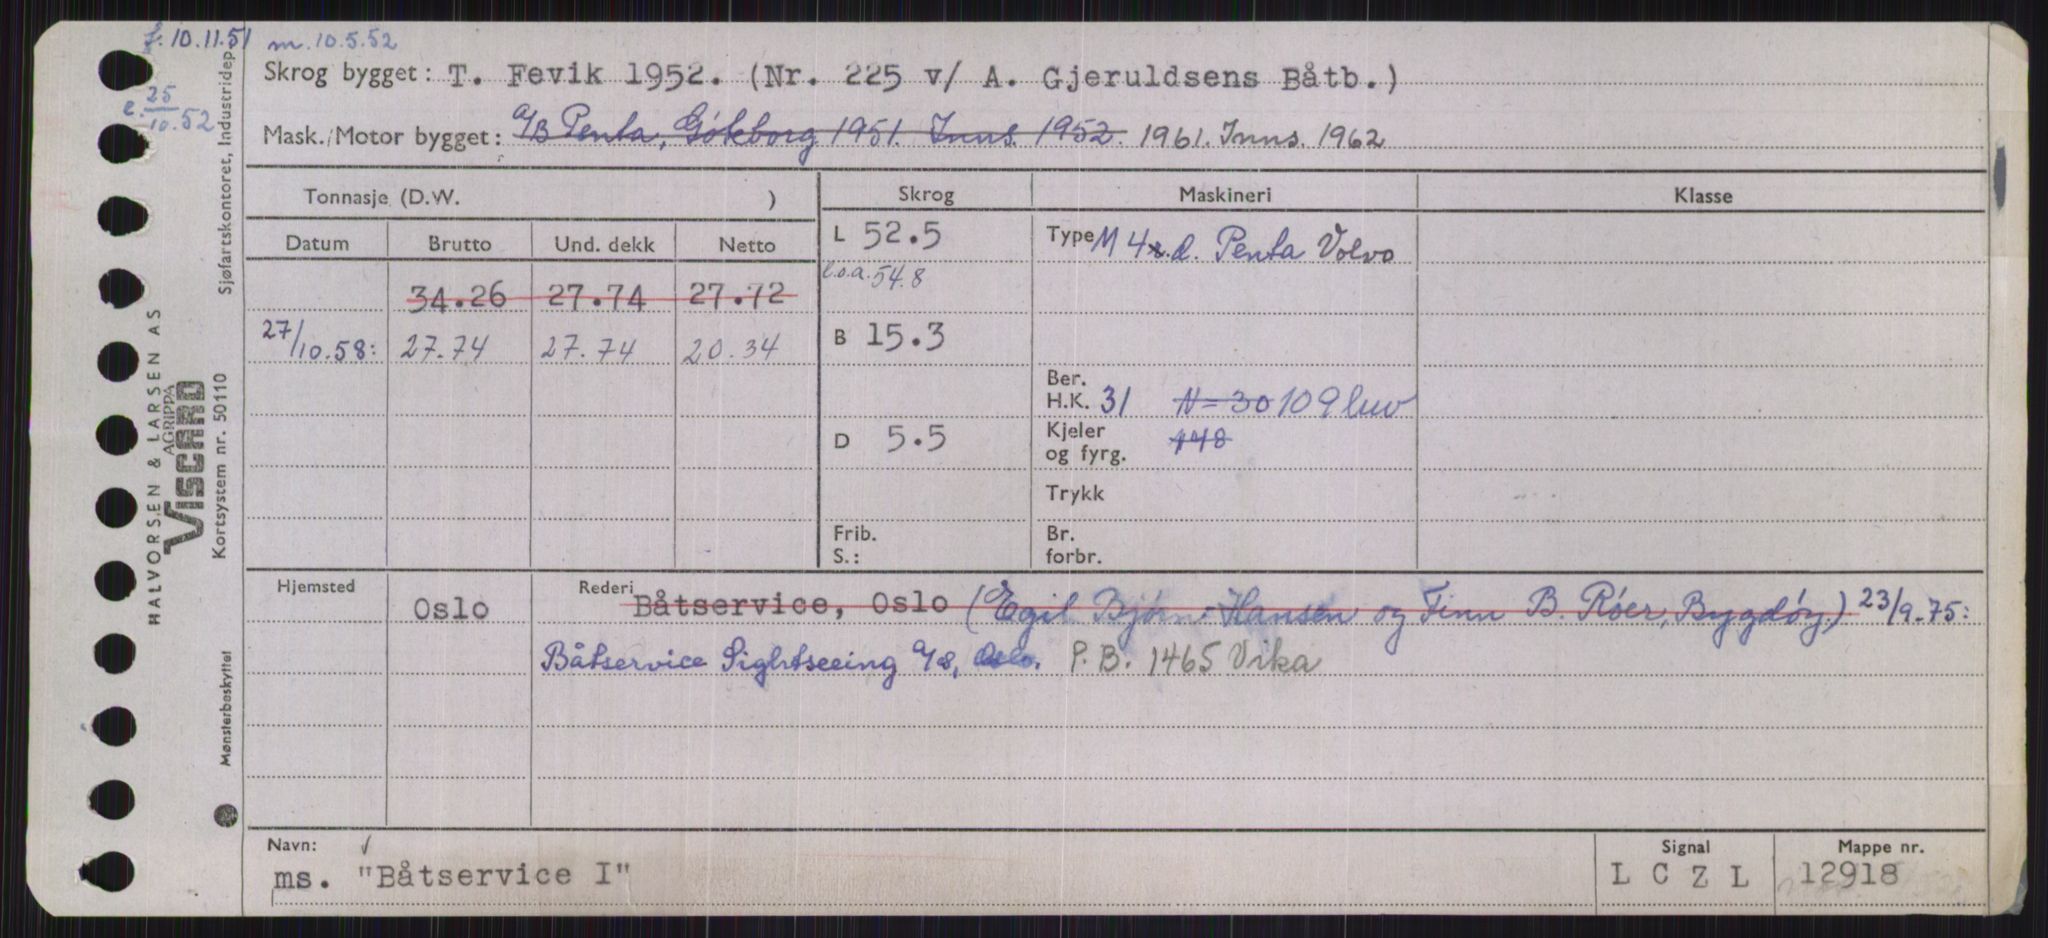 f. 10.11.51 m. 10.5.52
Skrog bygget: T. Fevik 1952. (Nr. 225 v/ A. Gjeruldsens Båtb.)
e. 25/10.52
Mask./Motor bygget: A/B Penta, Göteborg 1951. Inns. 1952. 1961. Inns. 1962
Tonnasje (D.W. ) Skrog Maskineri Klasse
Datum Brutto Und. dekk Netto L 52.5 Type M 4 s.d. Penta Volvo
l.o.a. 54.8
34.26 27.74 27.72
27/10.58: 27.74 27.74 20.34 B 15.3
Ber.
H.K. 31 N = 30 109 luv
D 5.5 Kjeler
og fyrg. 148
Trykk
Frib.
S.:
Br.
forbr.
Hjemsted Rederi
Oslo Båtservice, Oslo (Egil Bjørn-Hansen og Finn B. Röer, Bygdöy.) 23/9-75:
Båtservice Sightseeing A/S, Oslo. P.B. 1465 Vika
Navn: Signal Mappe nr.
ms. "Båtservice I" L C Z L 12918
Sjøfartskontoret, Industridep
HALVORSEN & LARSEN AS
AGRIPPA
VISCARD
Kortsystem nr. 50110
Mønsterbeskyttet